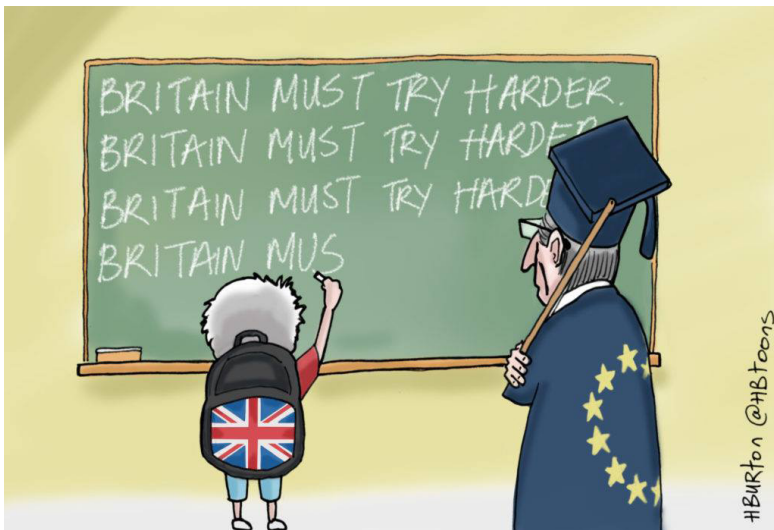 BRITAIN MUST TRY HARDER.
BRITAIN MUST TRY HARDER
BRITAIN MUST TRY HARDE
BRITAIN MUS
HBURTON @HBTOONS